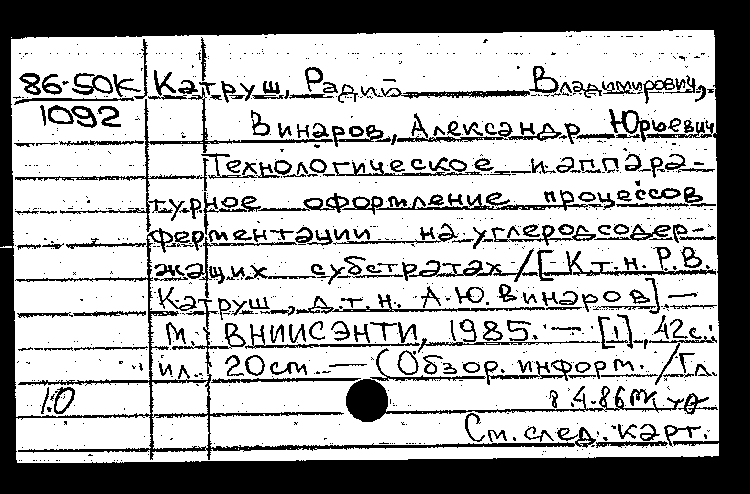 86-50К Катруш, Радий Владимирович,
1092
Винаров, Александр Юрьевич
Технологическое и аппара-
турное оформление процессов
ферментации на углеродсодер-
жащих субстратах /[К.т.н. Р.В.
Катруш, д.т.н. А.Ю. Винаров] —
М.: ВНИИСЭНТИ, 1985. — [1], 42с.:
ил.; 20см. — (Обзор. информ. / Гл.
10 8.4.86
См. след. карт.